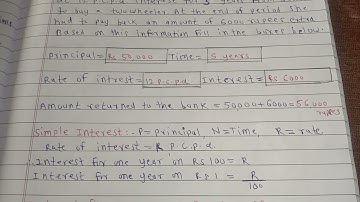 at 12 P.C.P.a interest for 5 years
to buy a two wheeler At the end of the period she
had to pay back an amount of 6000 rupees extra
Based on this information fill in the boxes below.
Principal= Rs 50,000 Time= 5 years
Rate of intrest= 12 p.c.p.a Interest= Rs 6000
Amount returned to the bank = 50000+6000=56,000
rupees
Simple Interest:- P=principal, N=Time, R= rate
Rate of interest=R P.C.P.a.
Interest for one year on Rs 100= R
Interest for one year on Rs 1 = R/100